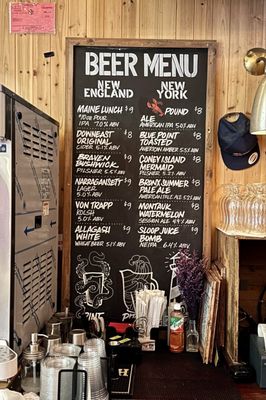 BEER MENU
NEW
ENGLAND
MAINE LUNCH $9
*16oz POUR
IPA 7.0% ABV
DOWNEAST $8
ORIGINAL
CIDER 5.1% ABV
BRAVEN $8
BUSHWICK
PILSNER 5.5% ABV
NARRAGANSETT $8
LAGER
5.0% ABV
VON TRAPP $8
KOLSH
5.0% ABV
ALLAGASH $8
WHITE
WHEAT BEER 5.2% ABV
NEW
YORK
POUND $8
ALE
AMERICAN IPA 5.0% ABV
BLUE POINT $8
TOASTED
AMERICAN AMBER 5.3% ABV
CONEY ISLAND $8
MERMAID
PILSNER 5.2% ABV
BRONX SUMMER $8
PALE ALE
AMERICAN PALE ALE 5.2% ABV
MONTAUK $8
WATERMELON
SESSION ALE 4.9% ABV
SLOOP JUICE $9
BOMB
NE IPA 6.4% ABV
PINT